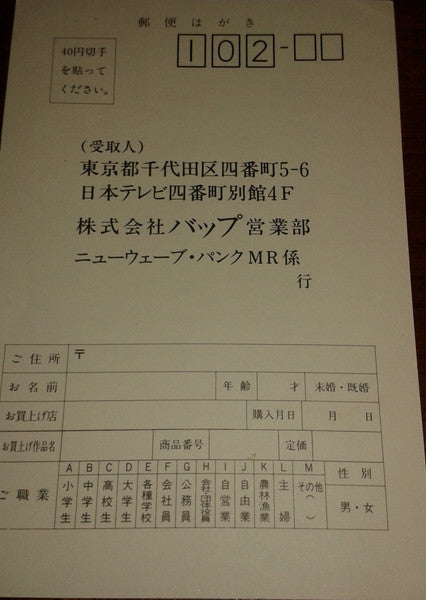 郵便はがき
40円切手
を貼って
ください。
102-
(受取人)
東京都千代田区四番町5-6
日本テレビ四番町別館4F
株式会社バップ営業部
ニューウェーブ・パンクMR係
行
ご住所 〒
お名前 年齢 才 未婚・既婚
お買上げ店 購入月日 月 日
お買上げ作品名 商品番号 定価
ご職業
A 小学生
B 中学生
C 高校生
D 大学生
E 各種学校
F 会社員
G 公務員
H 会社団体役員
I 自営業
J 自由業
K 農林漁業
L 主婦
M その他( )
性別
男・女